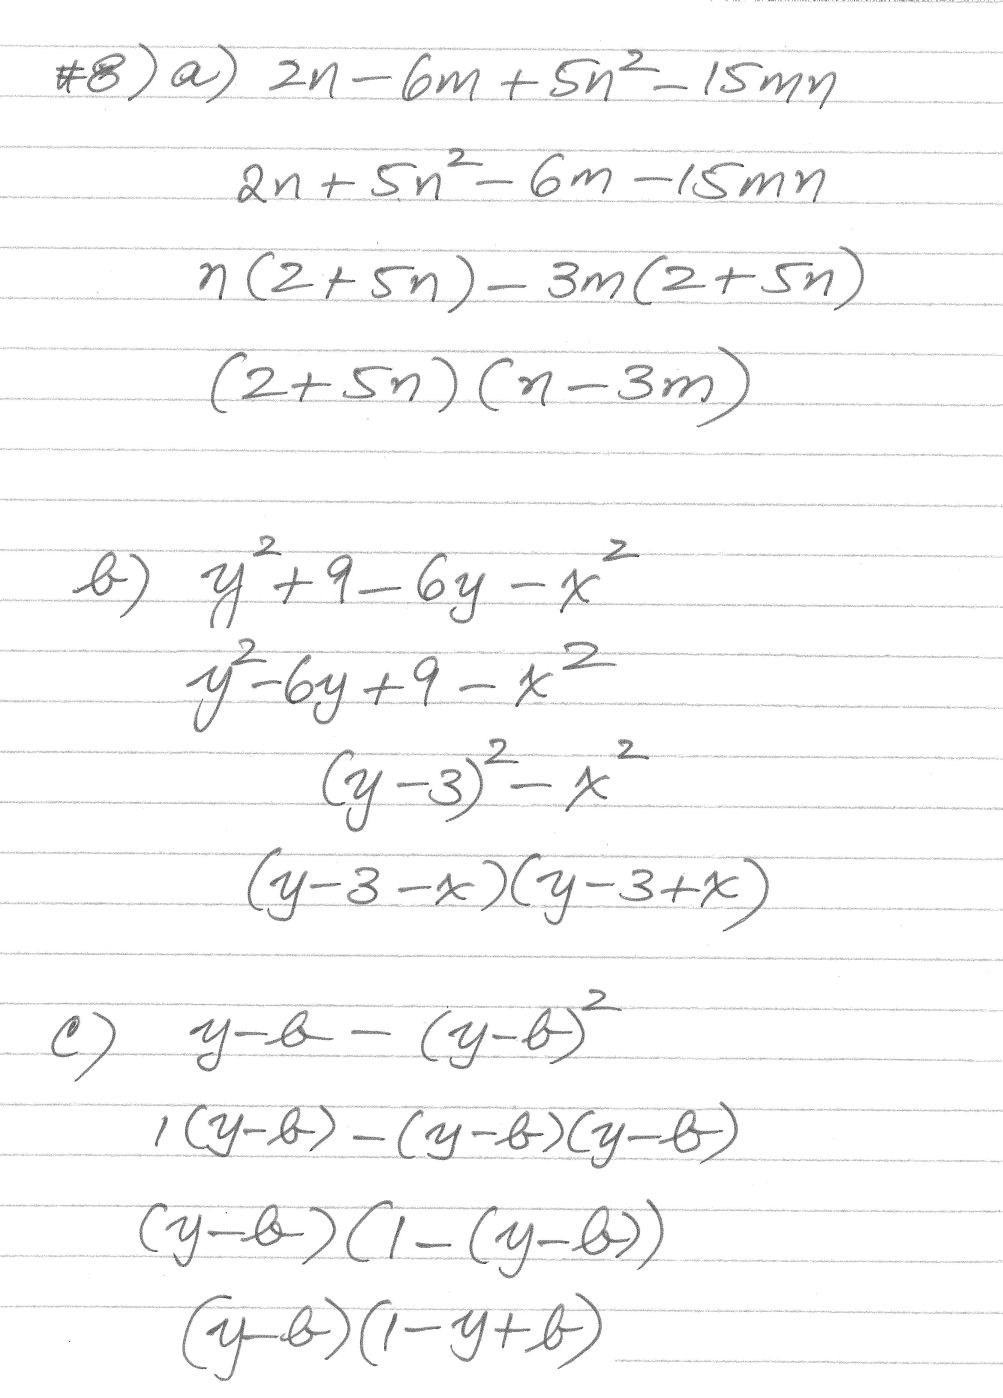 #8) a) 2n - 6m + 5n² - 15mn
2n + 5n² - 6m - 15mn
n(2 + 5n) - 3m(2 + 5n)
(2 + 5n)(n - 3m)
b) y² + 9 - 6y - x²
y² - 6y + 9 - x²
(y - 3)² - x²
(y - 3 - x)(y - 3 + x)
c) y - b - (y - b)²
1(y - b) - (y - b)(y - b)
(y - b)(1 - (y - b))
(y - b)(1 - y + b)